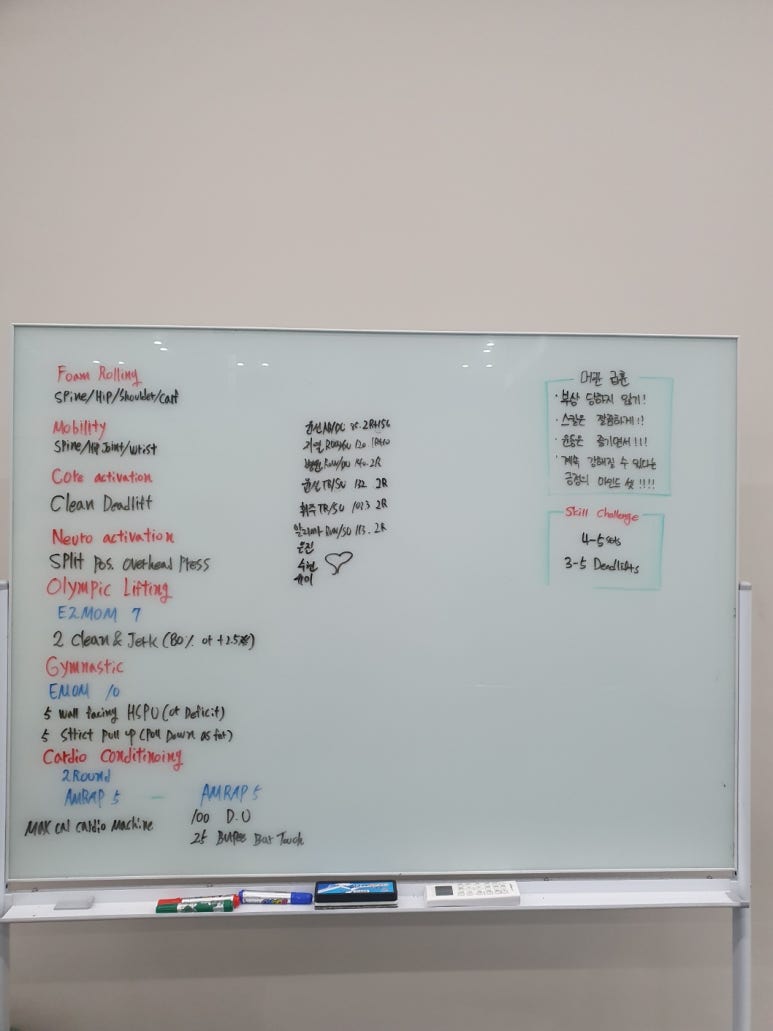 Foam Rolling
Spine/Hip/Shoulder/Calf
Mobility
Spine/Hip Joint/Wrist
Core activation
Clean Deadlift
Neuro activation
Split Pos. Overhead Press
Olympic Lifting
E2MOM 7
2 Clean & Jerk (80% or +2.5kg)
Gymnastic
EMOM 10
5 Wall facing HSPU (or Deficit)
5 Strict Pull up (Pull Down as fat)
Cardio Conditinoing
2 Round
AMRAP 5 - AMRAP 5
Max Cal Cardio Machine
100 D.U
25 Bar Touch
윤선 35. 2R+156
기열 Row/SU 120
Row/DU 140. 2R
윤선 TR/SU 132 2R
휘주 TR/SU 2R
Row/SU 113. 2R
은진
수현
부상 당하지 않기!
스킬은 깔끔하게!!
운동은 즐기면서!!!
계속 강해질 수 있다는
긍정의 마인드 셋!!!!
Skill Challenge
4-5 sets
3-5 Deadlifts